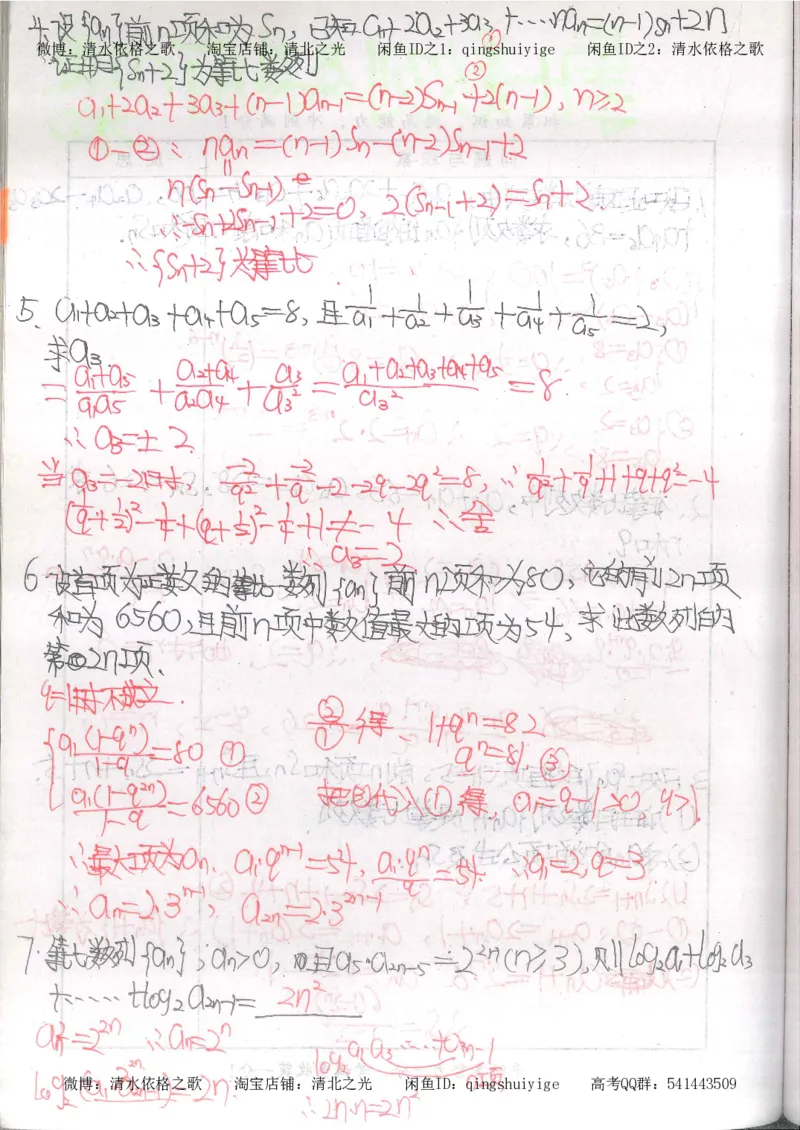 4. 设{an}前n项和为Sn, 已知a1+2a2+3a3+……nan=(n-1)Sn+2n ①
微博：清水依格之歌 淘宝店铺：清北之光 闲鱼ID之1：qingshuiyige 闲鱼ID之2：清水依格之歌
证明{Sn+2}为等比数列 ②
a1+2a2+3a3+(n-1)an-1=(n-2)Sn-1+2(n-1), n≥2
①-②: nan=(n-1)Sn-(n-2)Sn-1+2
n(Sn-Sn-1)
∴-Sn+2Sn-1+2=0, 2(Sn-1+2)=Sn+2
∴{Sn+2}为等比
5. a1+a2+a3+a4+a5=8, 且1/a1+1/a2+1/a3+1/a4+1/a5=2,
求a3
=(a1+a5)/(a1a5)+(a2+a4)/(a2a4)+a3/a3²=(a1+a2+a3+a4+a5)/a3²=8.
∴a3=±2
当a3=-2时, -2/q²+-2/q-2-2q-2q²=8, ∴1/q²+1/q+1+q+q²=-4
(q+1/2)²-1/4+(1/q+1/2)²-1/4+1≠-4 ∴舍
∴a3=2
6. 设首项为正数的等比数列{an}前n项和为80, 它的前2n项
和为6560, 且前n项中数值最大的项为54, 求此数列的
第2n项.
q=1时不成立.
a1(1-qⁿ)/(1-q)=80 ① ②/①得, 1+qⁿ=82
qⁿ=81 ③
a1(1-q²ⁿ)/(1-q)=6560 ② 把③代入①得, a1=q-1>0, q>1.
∴最大项为an. a1·qⁿ⁻¹=54, a1·qⁿ/q=54 ∴a1=2, q=3
∴an=2·3ⁿ⁻¹, a2n=2·3²ⁿ⁻¹
7. 等比数列{an}, an>0, 且a5·a2n-5=2²ⁿ(n≥3), 则log2a1+log2a3
+……+log2a2n-1= 2n²
an²=2²ⁿ ∴an=2ⁿ
log2 a1a3……a2n-1
n项
log2(a1·a2n-1)=2n.
微博：清水依格之歌 淘宝店铺：清北之光 闲鱼ID：qingshuiyige 高考QQ群：541443509
∴2n·n=2n²